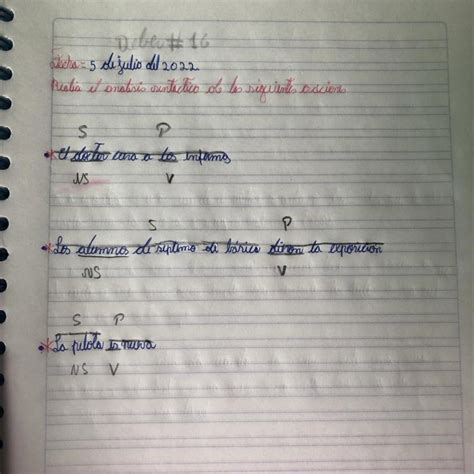 Deber # 16
Fecha = 5 de julio del 2022
Realiza el analisis sintactico de las siguientes oraciones
S P
* El doctor cura a los enfermos
NS V
S P
* Los alumnos de septimo de básica dieron la exposicion
NS V
S P
* La pelota es nueva
NS V